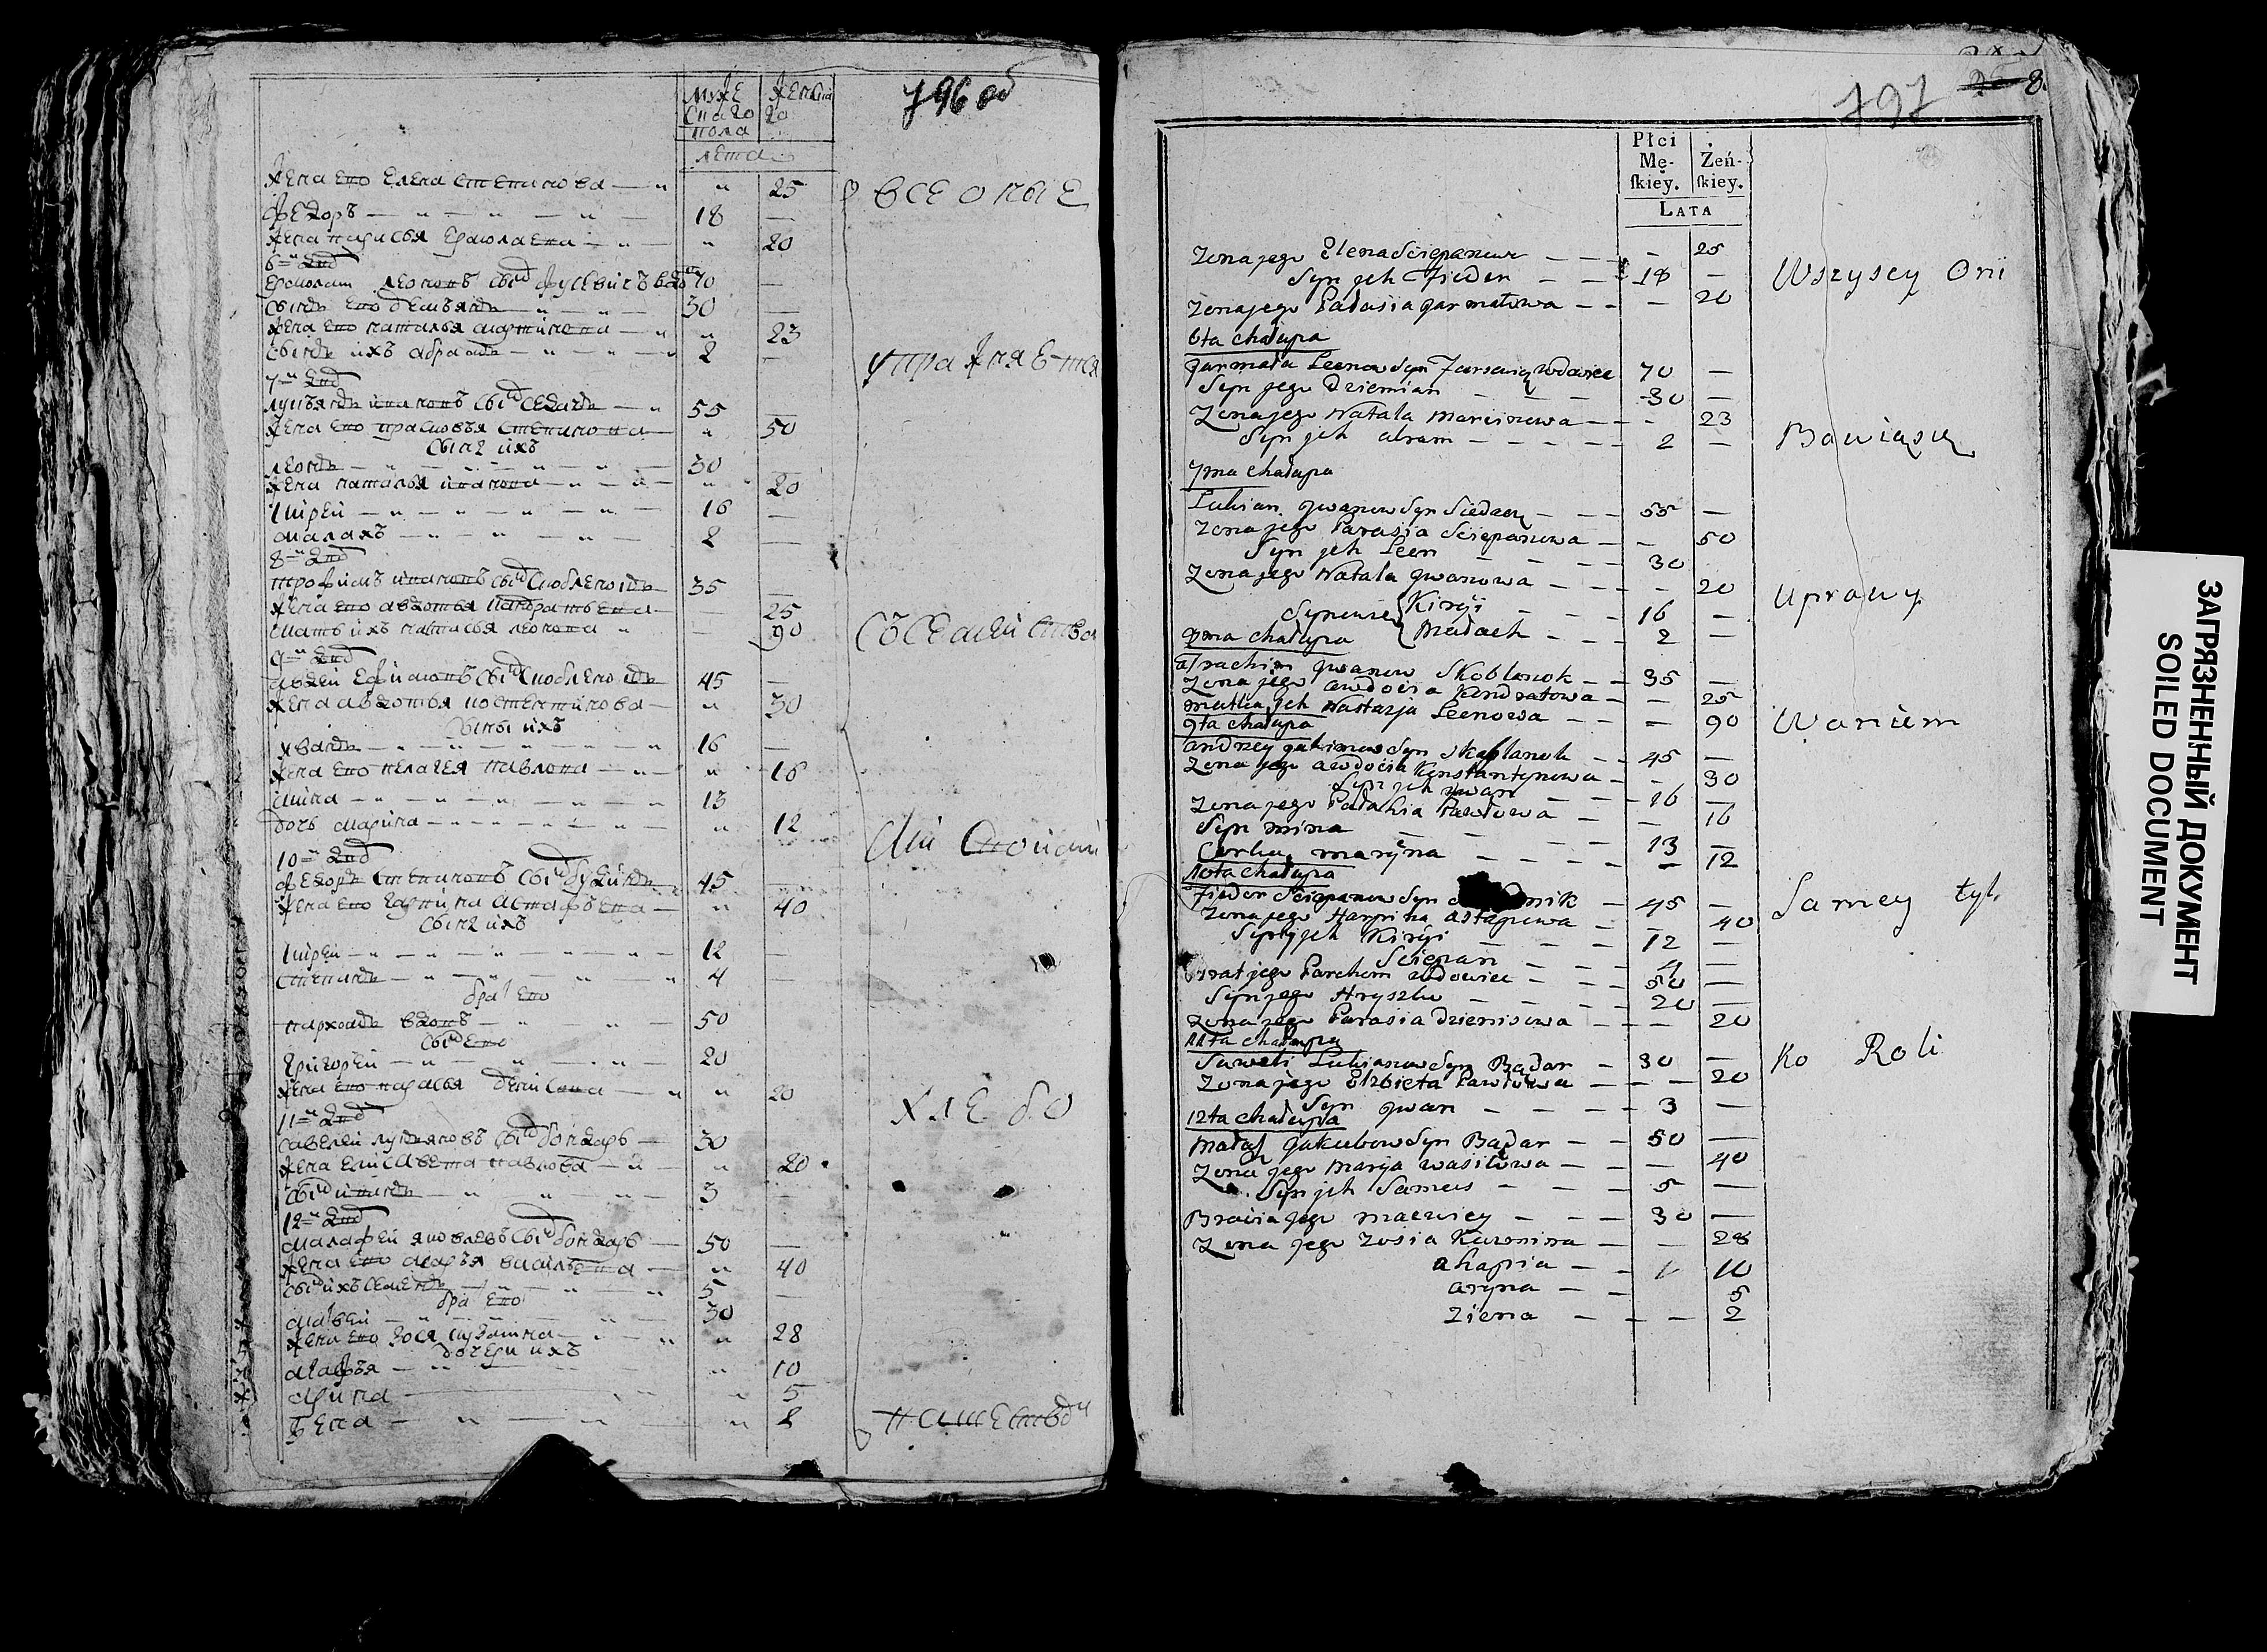 796 об
муже
скаго
пола
женска
го
лета
жена ево елена степанова 25
всеоные
федоръ 18
жена парасья ермолаева 20
6 двд
ермолай леоновъ сын вдов 70
сынъ ево демьянъ 30
жена ево наталья мартинова 23
сынъ ихъ абрамъ 2
упражняется
7 двд
лукьянъ ивановъ сын седачъ 55
жена ево прасковья степанова 50
сыны ихъ
леонъ 30
жена наталья иванова 20
кирей 16
малахъ 2
8 двд
трофимъ ивановъ сын скобленокъ 35
жена ево авдотья кондратьева 25
мать ихъ настасья леонова 90
съсемейства
9 двд
авдей ефимовъ сын скобленокъ 45
жена авдотья костентинова 30
сыны ихъ
иванъ 16
жена ево пелагея павлова 16
мина 13
дочь марина 12
ми своими
10 двд
федоръ степановъ сын 45
жена ево гарпина астафьева 40
сыны ихъ
кирей 12
степанъ 4
брат ево
пархомъ вдовъ 50
сын ево
григорей 20
жена ево парасья денисова 20
хлебо
11 двд
савелей лукьяновъ сын бондарь 30
жена елисавета павлова 20
сын иванъ 3
12 двд
малафей яковлевъ сын бондарь 50
жена ево марья васильева 40
сын ихъ семенъ 5
брат ево
матвей 30
жена ево зося 28
дочери ихъ
агафья 10
арина 5
зена 2
пашеством
797 8
Płci
Mę-
skiey.
Żeń-
skiey.
LATA
Zona jego Elena Sciepanowa — 25
Syn jch Fiedor 18 —
Wszyscy Oni
Zona jego Parasia Jarmałowa — 20
6ta chałupa
Jarmała Leonow Syn wdowiec 70 —
Syn jego Dziemian 30 —
Zona jego Natala Marcinowa — 23
Syn jch Abram 2 —
Bawią się
7ma chałupa
Lukian Jwanow Syn Siedacz 55 —
Zona jego Parasia Sciepanowa — 50
Syn jch Leon 30
Zona jego Natala Jwanowa — 20
Synowie Kiryi 16 —
Uprawą
Małach 2 —
8ma chałupa
Trachim Jwanow Skoblanok 35 —
Zona jego Awdocia Kondratowa — 25
Matka jch Nastazja Leonowa — 90
Warium
9ta chałupa
Andrzey Jakimow Syn Skoblanok 45 —
Zona jego Awdocia Konstantynowa — 30
Syn jch Jwan 16 —
Zona jego Pałahia Pawłowa — 16
Syn Mina 13 —
Curka Maryna — 12
10ta chałupa
Fiedor Sciepanow Syn nik 45 —
Samey tyl.
Zona jego Harpina Astapowa — 40
Syn jch Kiryi 12 —
Sciepan 4 —
Brat jego Parchom wdowiec 50 —
Syn jego Hryszko 20 —
Zona jego Parasia Dzienisowa — 20
11ta chałupa
Saweli Lukianow Syn Bądar 30 —
Ko Roli
Zona jego Elzbieta Pawłowa — 20
Syn Jwan 3 —
12ta chałupa
Małaf Jakubow Syn Bądar 50 —
Zona jego Maryia Wasilowa — 40
Syn jch Samus 5 —
Bracia jego Macwiey 30 —
Zona jego Zosia Kuzmina — 28
Ahapia 10
Aryna 5
Ziena — 2
ЗАГРЯЗНЕННЫЙ ДОКУМЕНТ
SOILED DOCUMENT